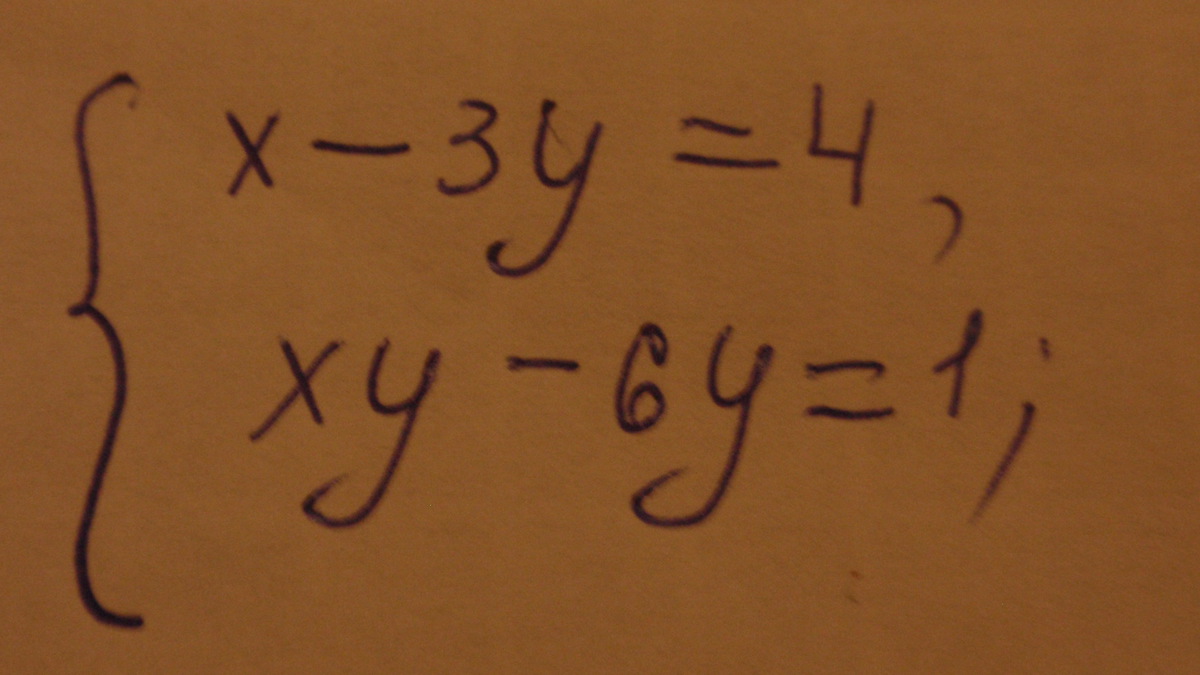 x - 3y = 4,
xy - 6y = 1;